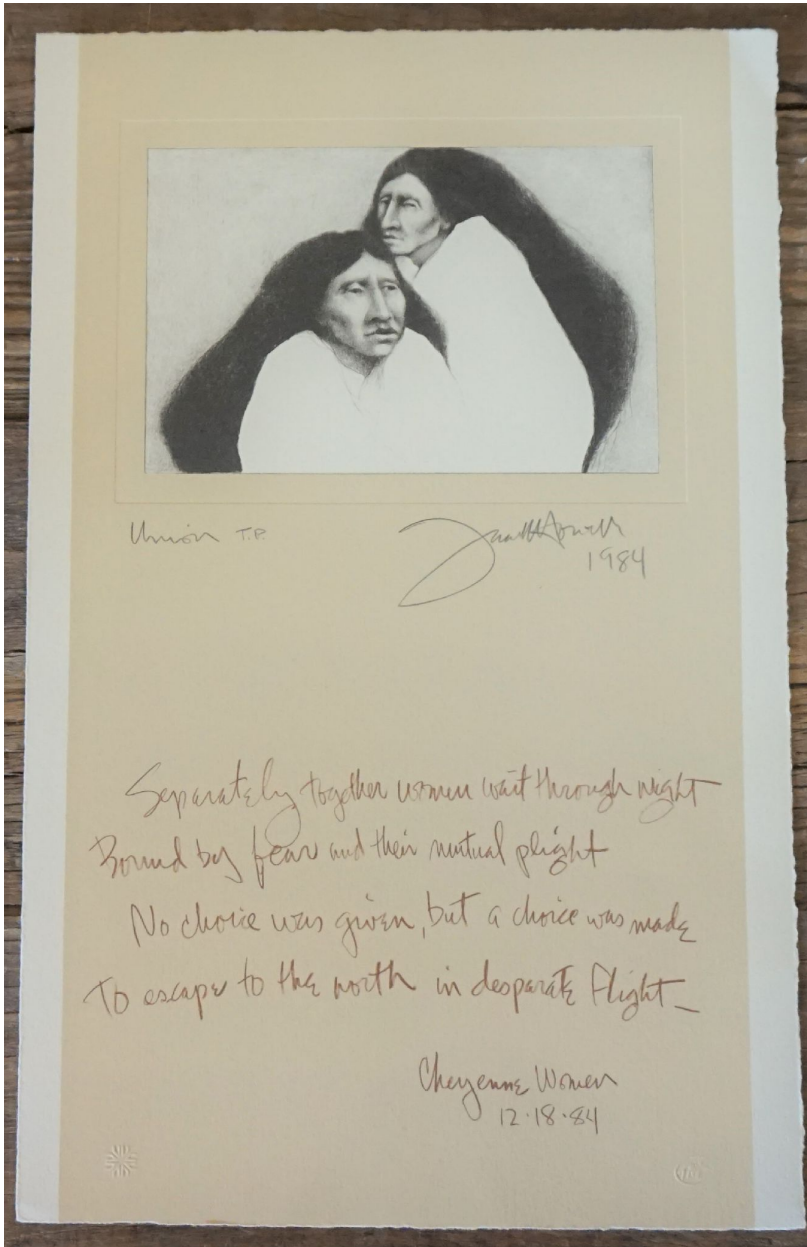 Union T.P.
1984
Separately together women wait through night
Bound by fear and their mutual plight
No choice was given, but a choice was made
To escape to the north in desparate flight_
Cheyenne Women
12.18.84